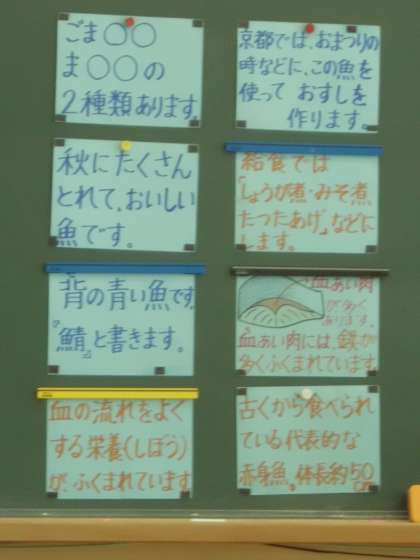 ごま○○
ま○○の
2種類あります。
秋にたくさん
とれて、おいしい
魚です。
背の青い魚です。
『鯖』と書きます。
血の流れをよく
する栄養(しぼう)
が、ふくまれています
京都では、おまつりの
時などに、この魚を
使って おすしを
作ります。
給食では
「しょうが煮・みそ煮
たつたあげ」などに
します。
血あい肉
が多く
あります。
血あい肉には、鉄が
多くふくまれています
古くから食べられ
ている代表的な
赤身魚。体長約50
cm